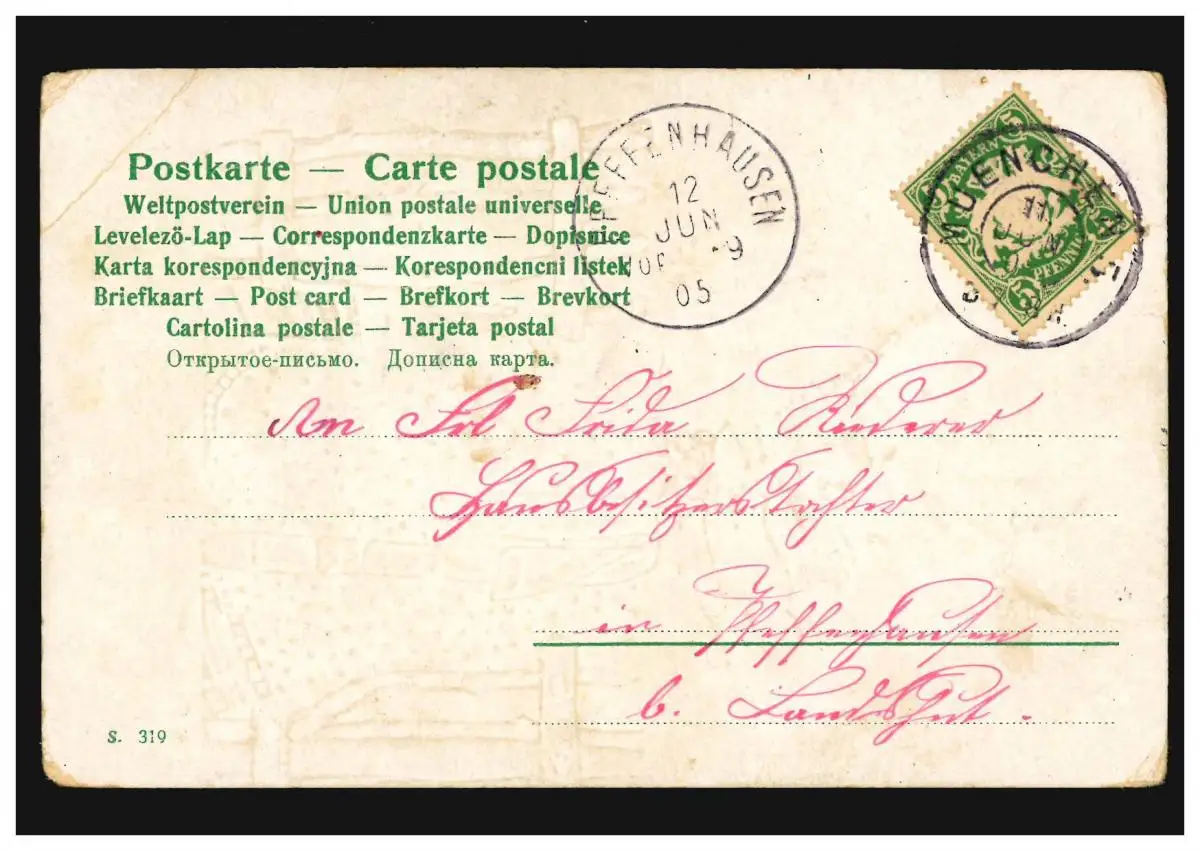 Postkarte — Carte postale
Weltpostverein — Union postale universelle
Levelező-Lap — Correspondenzkarte — Dopisnice
Karta korespondencyjna — Korespondencni listek
Briefkaart — Post card — Brefkort — Brevkort
Cartolina postale — Tarjeta postal
Открытое-письмо. Дописна карта.
PFEFFENHAUSEN
12
JUN
VOR 8-9
05
BAYERN
5
5
PFENNIG
MUENCHEN
11
JUN
An Frl Frida Riederer
Hausbesitzerstochter
in Pfeffenhausen
b. Landshut.
S. 319